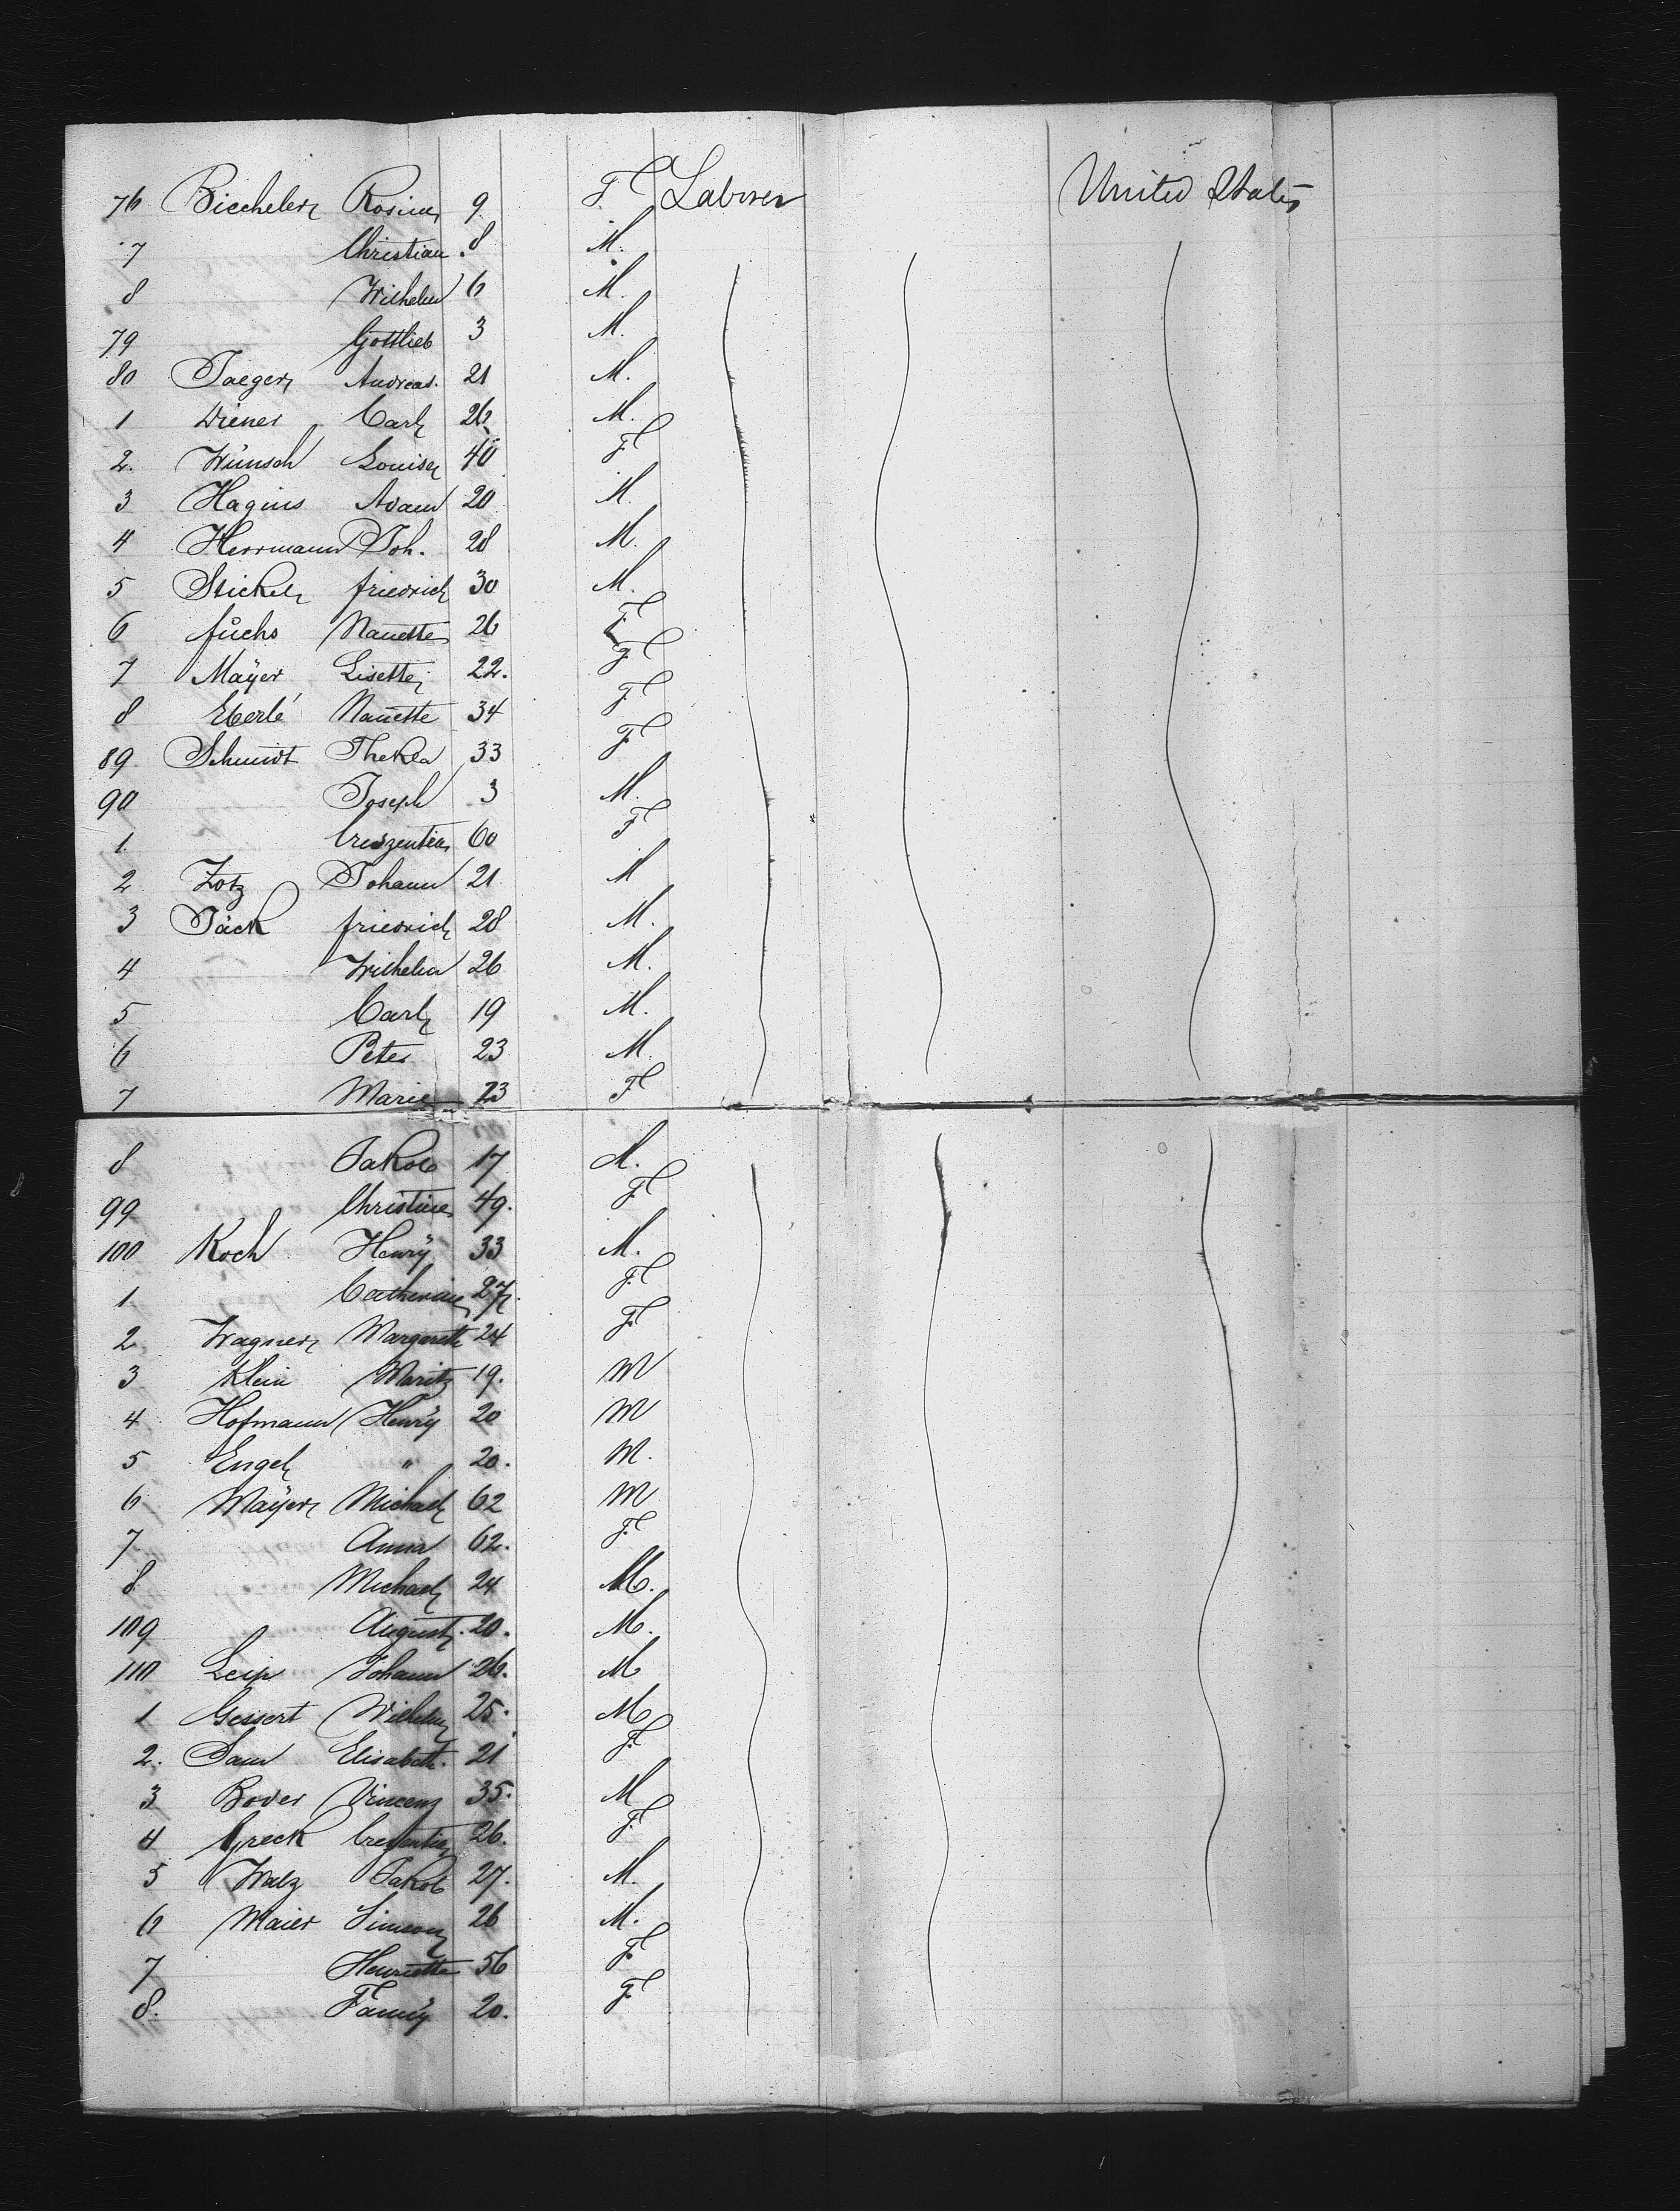 76 Biecheler Rosine 9 F Laborer United States
7 Christian 8 M.
8 Wilhelm 6 M.
79 Gottlieb 3 M.
80 Jaeger Andreas. 21 M.
1 Diener Carl 26 M.
2. Wünsch Louise 40 F
3 Hagius Adam 20 M.
4 Herrmann Joh. 28 M.
5 Stickel friedrich 30 M.
6 fuchs Nanette 26 F
7 Mayer Lisette 22. F
8 Eberle Nanette 34 F
89 Schmidt Thekla 33 F
90 Joseph 3 M.
1. Creszentia 60 F
2 Zotz Johann 21 M
3 Jäck friedrich 28 M.
4 Wilhelm 26 M.
5 Carl 19 M.
6 Peter 23 M.
7 Marie 23 F
8 Jakob 17 M.
99 Christine 49. F
100 Koch Henry 33 M.
1 Catherine 27. F
2 Wagner Margareth 24 F
3 Klein Moritz 19. M
4 Hofmann Henry 20 M
5 Engel " 20. M.
6 Mayer Michael 62 M
7 Anna 62. F
8 Michael 24 M.
109 August. 20. M.
110 Johann 26. M
1 Gessert Wilhelm 25. M
2. Elisabeth. 21 F
3 Boder Vincenz 35. M
4 Greck Crezentia 26. F
5 Walz Jakob 27. M.
6 Maier Simson 26 M.
7 Henriette 56 F
8. Fanny 20. F